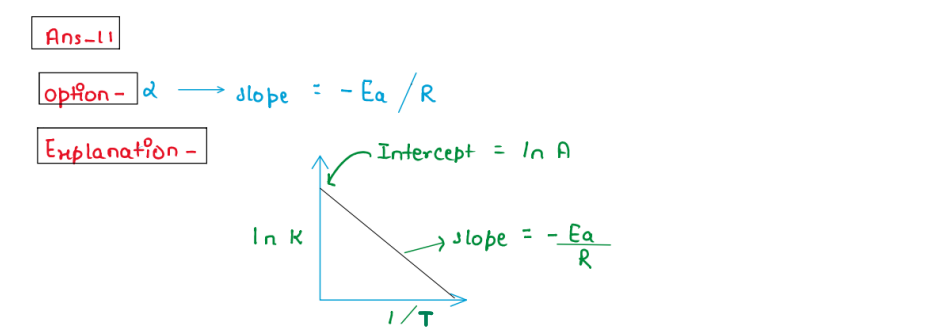 Ans-11
option- d → slope = - Ea / R
Explanation -
Intercept = ln A
ln K
→ slope = - Ea / R
1/T